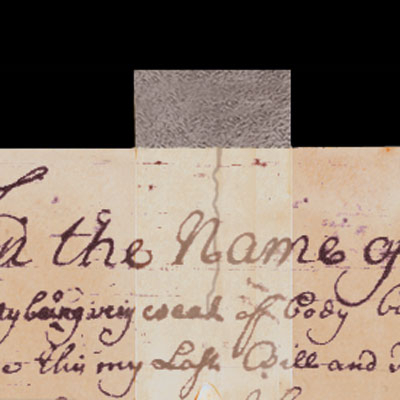 the Name
being very weak off Body
thiss my Last Will and